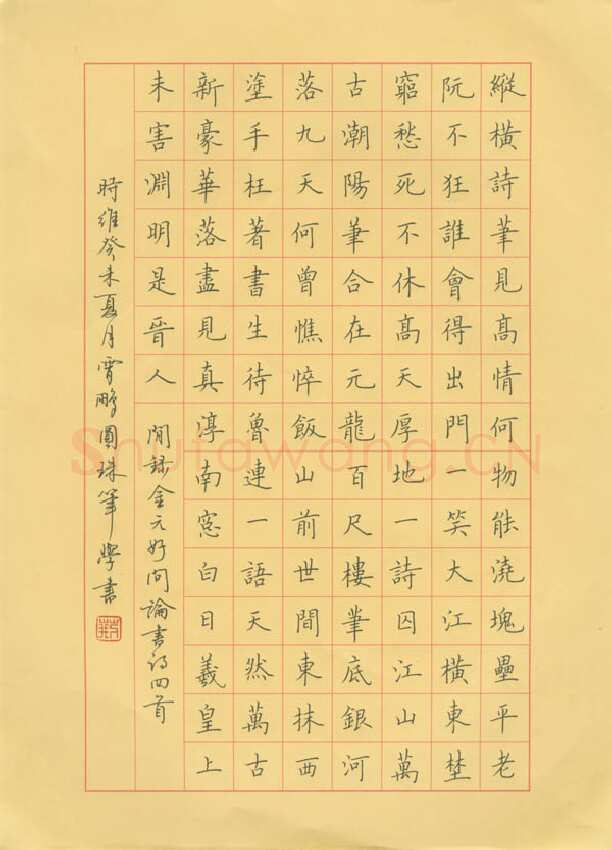 縱橫詩筆見高情何物能澆塊壘平老
阮不狂誰會得出門一笑大江橫東埜
窮愁死不休高天厚地一詩囚江山萬
古潮陽筆合在元龍百尺樓筆底銀河
落九天何曾憔悴飯山前世間東抹西
塗手枉著書生待魯連一語天然萬古
新豪華落盡見真淳南窓白日羲皇上
未害淵明是晉人 閒錄金元好問論書詩四首
時維癸未夏月霄鵬圓珠筆學書
Shufawang.CN